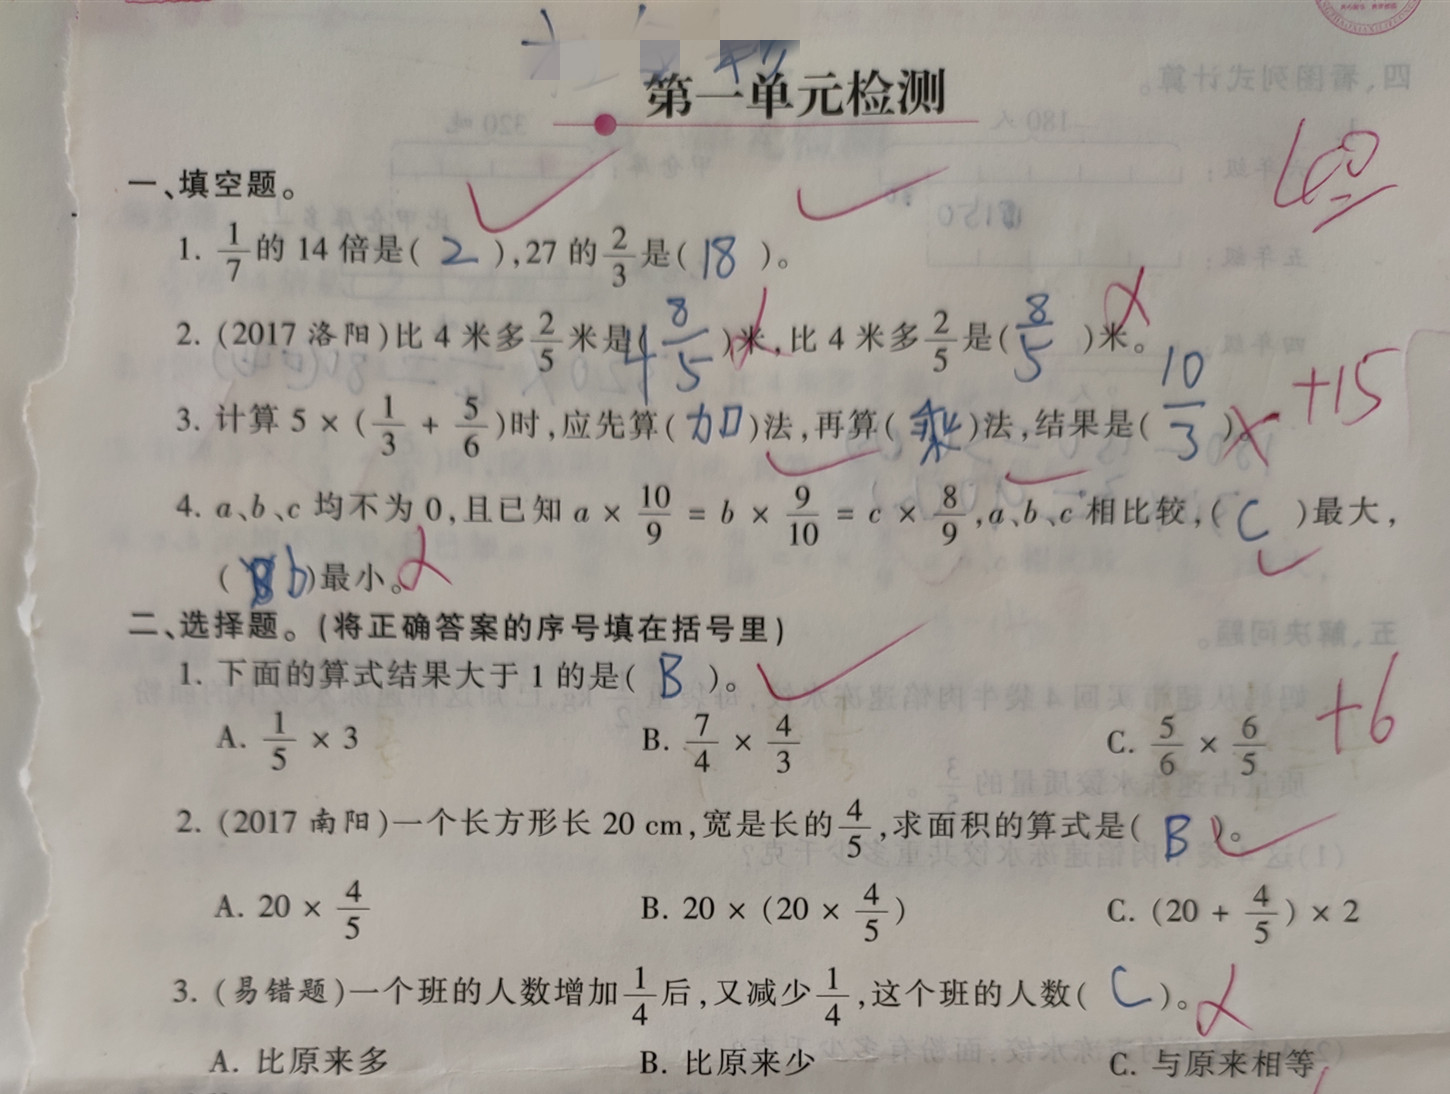 第一单元检测
100
一、填空题。
1. 1/7的 14 倍是( 2 ),27 的2/3是( 18 )。
2. (2017 洛阳)比 4 米多2/5米是( 4 8/5 )米,比 4 米多2/5是( 8/5 )米。
3. 计算 5 × (1/3 + 5/6)时,应先算( 加 )法,再算( 乘 )法,结果是( 10/3 )。 +15
4. a、b、c 均不为 0,且已知 a × 10/9 = b × 9/10 = c × 8/9,a、b、c 相比较,( C )最大,
( b )最小。
二、选择题。(将正确答案的序号填在括号里)
1. 下面的算式结果大于 1 的是( B )。
A. 1/5 × 3 B. 7/4 × 4/3 C. 5/6 × 6/5 +6
2. (2017 南阳)一个长方形长 20 cm,宽是长的4/5,求面积的算式是( B )。
A. 20 × 4/5 B. 20 × (20 × 4/5) C. (20 + 4/5) × 2
3. (易错题)一个班的人数增加1/4后,又减少1/4,这个班的人数( C )。
A. 比原来多 B. 比原来少 C. 与原来相等